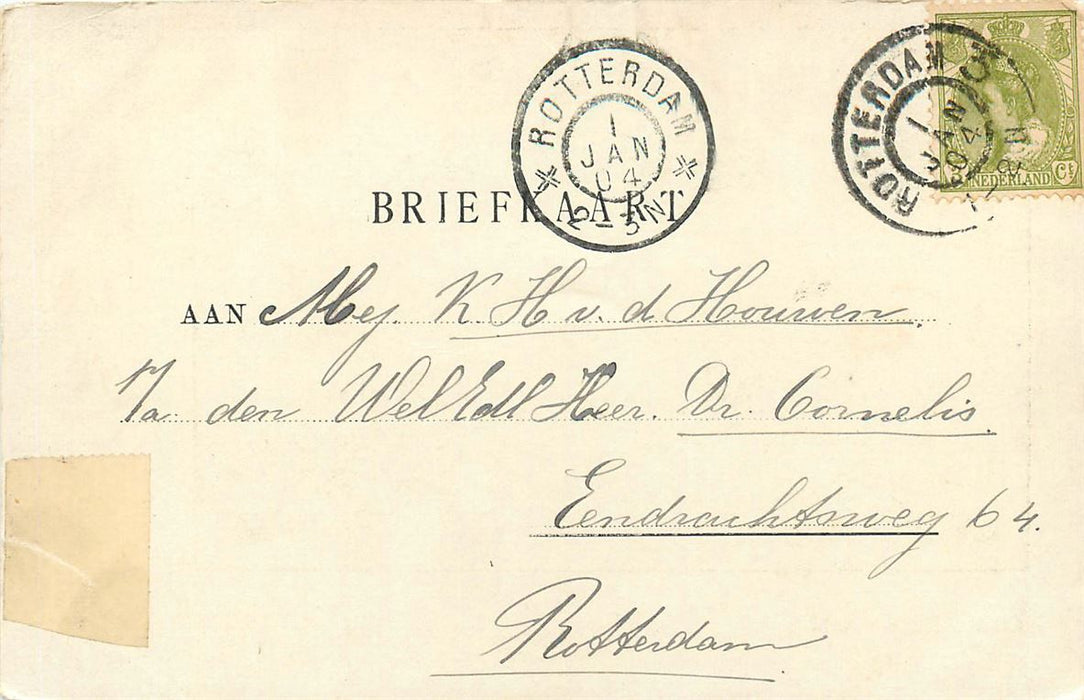 ROTTERDAM
1
JAN
04
2-3N
ROTTERDAM
1
JAN
04
3
NEDERLAND Ct
BRIEFKAART
AAN Mej. K H v. d Houwen.
p/a den WelEdl Heer. Dr. Cornelis.
Eendrachtsweg 64.
Rotterdam